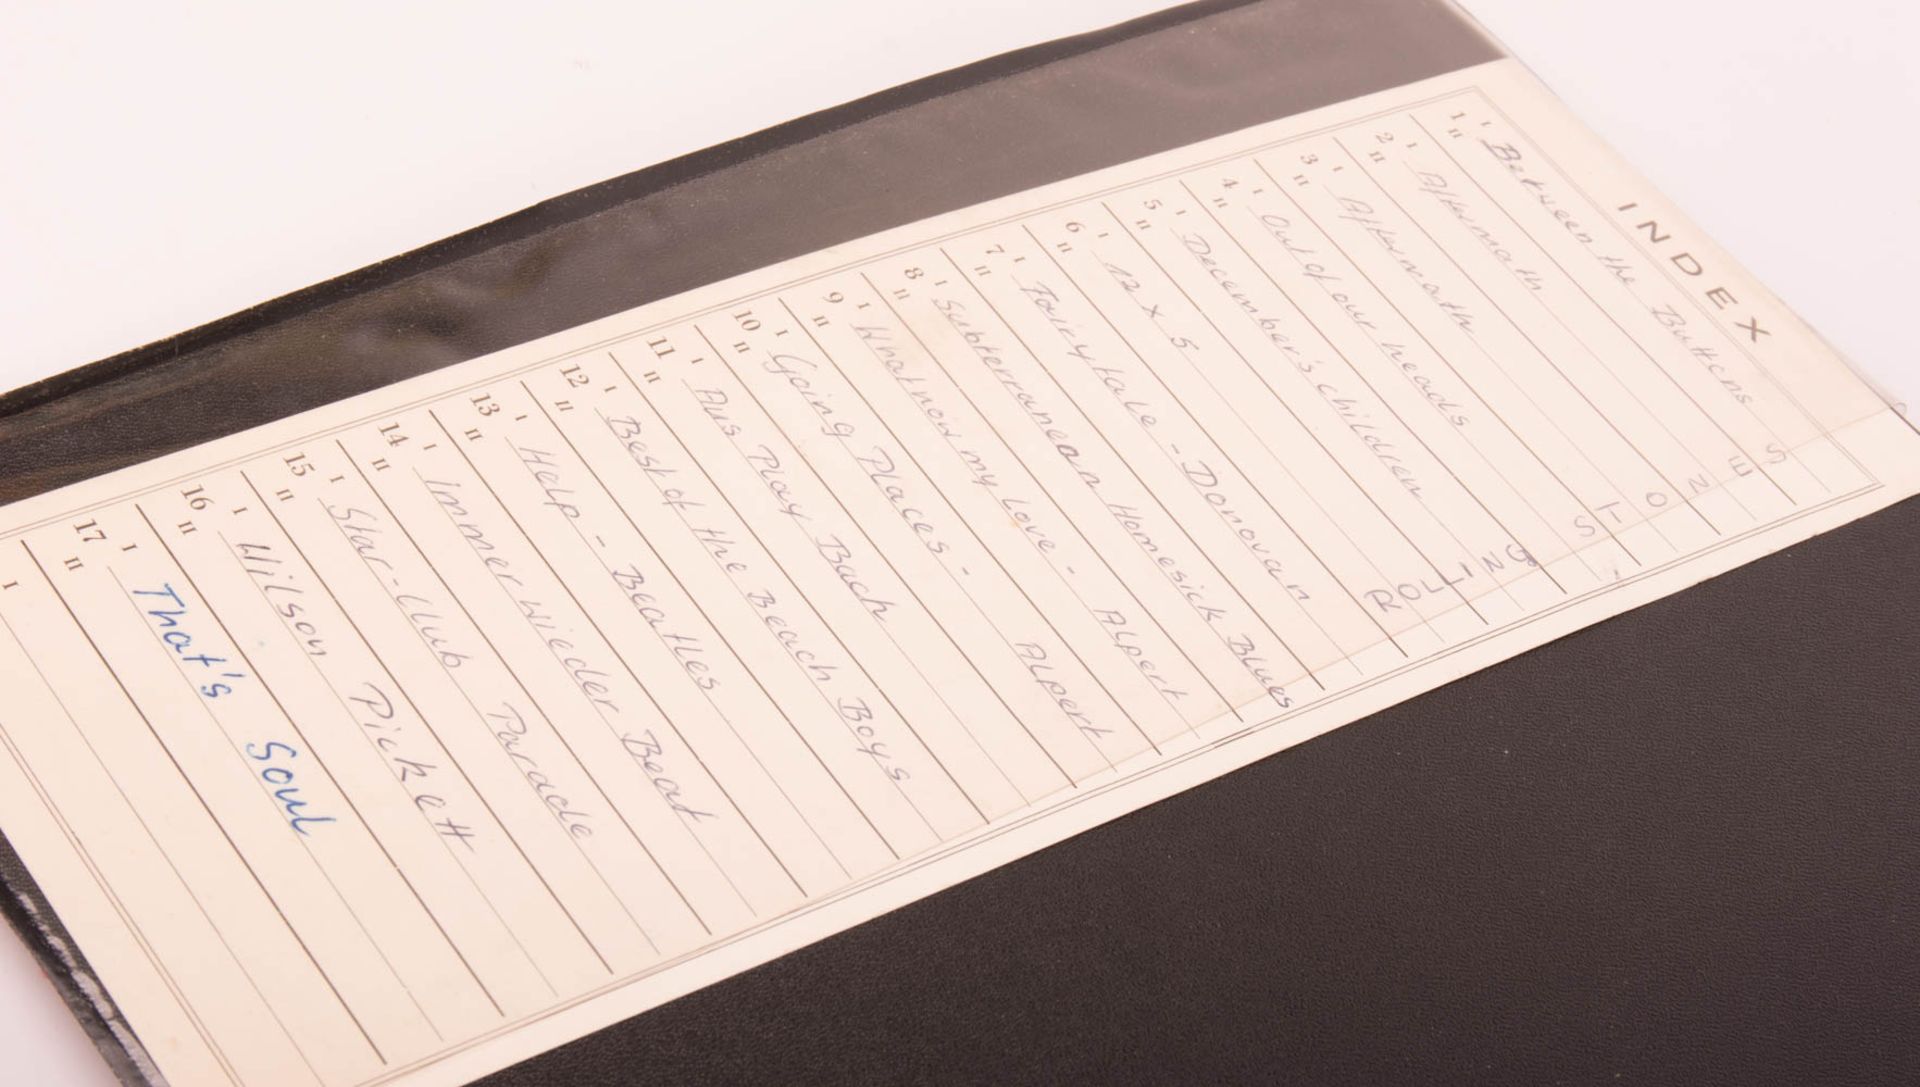 INDEX
1 I Between the Buttons
II
2 I Aftermath
II
3 I Aftermath
II
4 I Out of our heads
II
5 I December's children
II
6 I 12 x 5
II
ROLLING STONES
7 I Fairytale - Donovan
II
8 I Subterranean Homesick Blues
II
9 I What now my Love - Alpert
II
10 I Going Places - Alpert
II
11 I Aus Play Bach
II
12 I Best of the Beach Boys
II
13 I Help - Beatles
II
14 I immer wieder Beat
II
15 I Star-Club Parade
II
16 I Wilson Pickett
II
17 I That's Soul
II
I